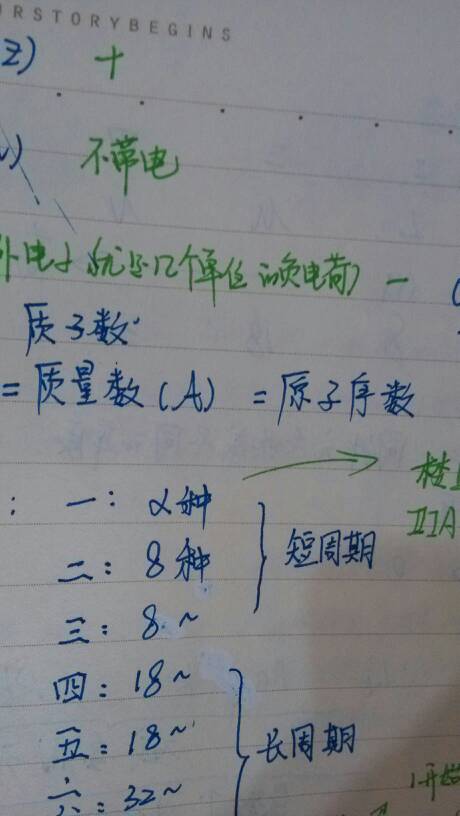 RSTORYBEGINS
Z) +
不带电
外电子 几个单位 负电荷) -
质子数
= 质量数(A) = 原子序数
: 一: 2种
二: 8种 短周期
ⅡA
三: 8~
四: 18~
五: 18~ 长周期
六: 32~